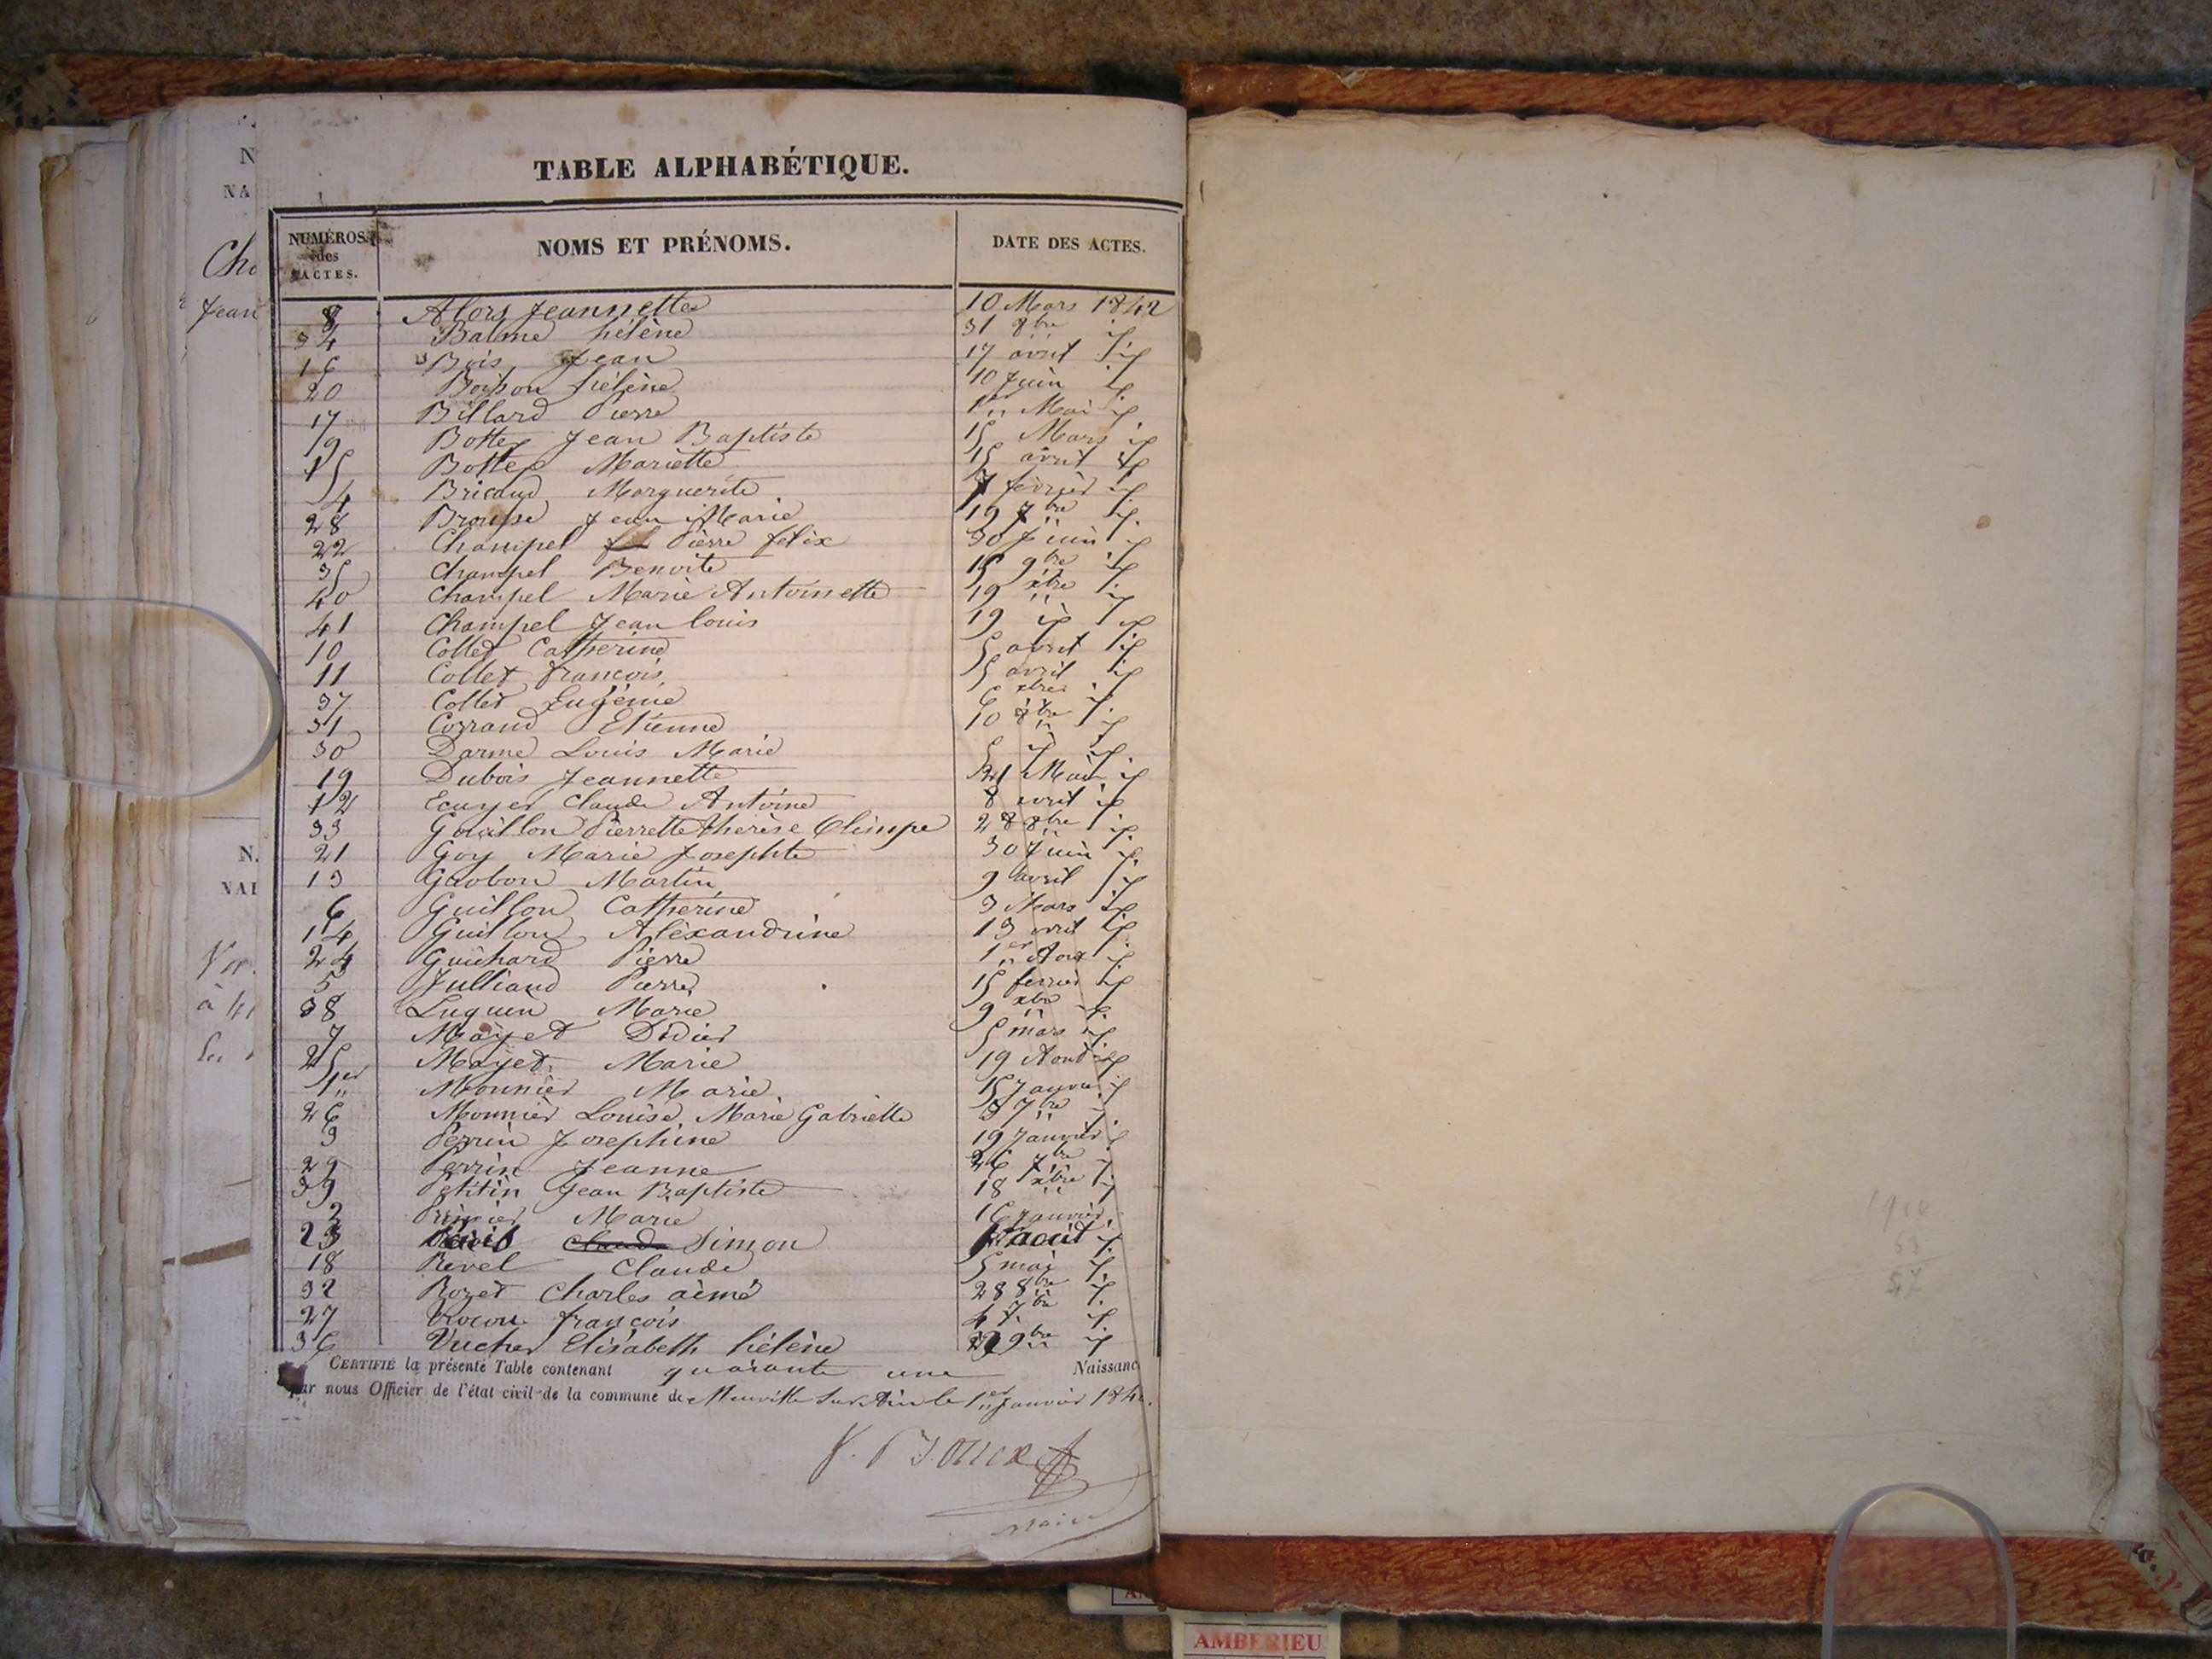 TABLE ALPHABÉTIQUE.
NUMÉROS des ACTES. NOMS ET PRÉNOMS. DATE DES ACTES.
8 Alors Jeannette 10 Mars 1842
34 Balme hélène 31 8bre id
16 Bois Jean 17 avril id
20 Boisson hélène 10 Juin id
17 Billard Pierre 1er Mai id
9 Bottex Jean Baptiste 15 Mars id
15 Bottex Mariette 15 avril id
4 Bricaud Marguerite 7 février id
28 Brousse Jean Marie 19 7bre id
22 Champel Pierre félix 30 Juin id
35 Champel Benoite 15 9bre id
40 Champel Marie Antoinette 19 xbre id
41 Champel Jean louis 19 id id
10 Collet Catherine 5 avril id
11 Collet françois 5 avril id
37 Collet Eugénie 6 xbre id
31 Corrand Etienne 10 8bre id
30 Darme Louis Marie 5 id id
19 Dubois Jeannette 21 Mai id
12 Ecuyer Claude Antoine 8 avril id
33 Gouillon Pierrette thérèse Olimpe 28 8bre id
21 Goy Marie Josephte 30 Juin id
13 Martin 9 avril id
6 Guillon Catherine 3 Mars id
14 Guillon Aléxandrine 13 avril id
24 Guichard Pierre 1er Aout id
5 Julliand Pierre 15 février id
38 Luquin Marie 9 xbre id
7 Mayet Didier 5 mars id
25 Mayet Marie 19 Aout id
1er Monnier Marie 15 Janvier id
26 Monnier Louise Marie Gabrielle 3 7bre id
3 Perrin Josephine 19 Janvier id
29 Perrin Jeanne 26 7bre id
39 Petitin Jean Baptiste 18 xbre id
2 Marie 16 Janvier
23 Claude Simon août id
18 Revel Claude 5 mai id
32 Rozet Charles aimé 28 8bre id
27 françois 4 7bre id
36 Vucher Elisabeth hélène 9bre id
CERTIFIÉ la présente Table contenant quarante une Naissanc
par nous Officier de l'état civil de la commune de Neuville sur Ain le 1er Janvier 184
maire
N
NA
Cho
Jean
N.
NAI
à
AMBERIEU